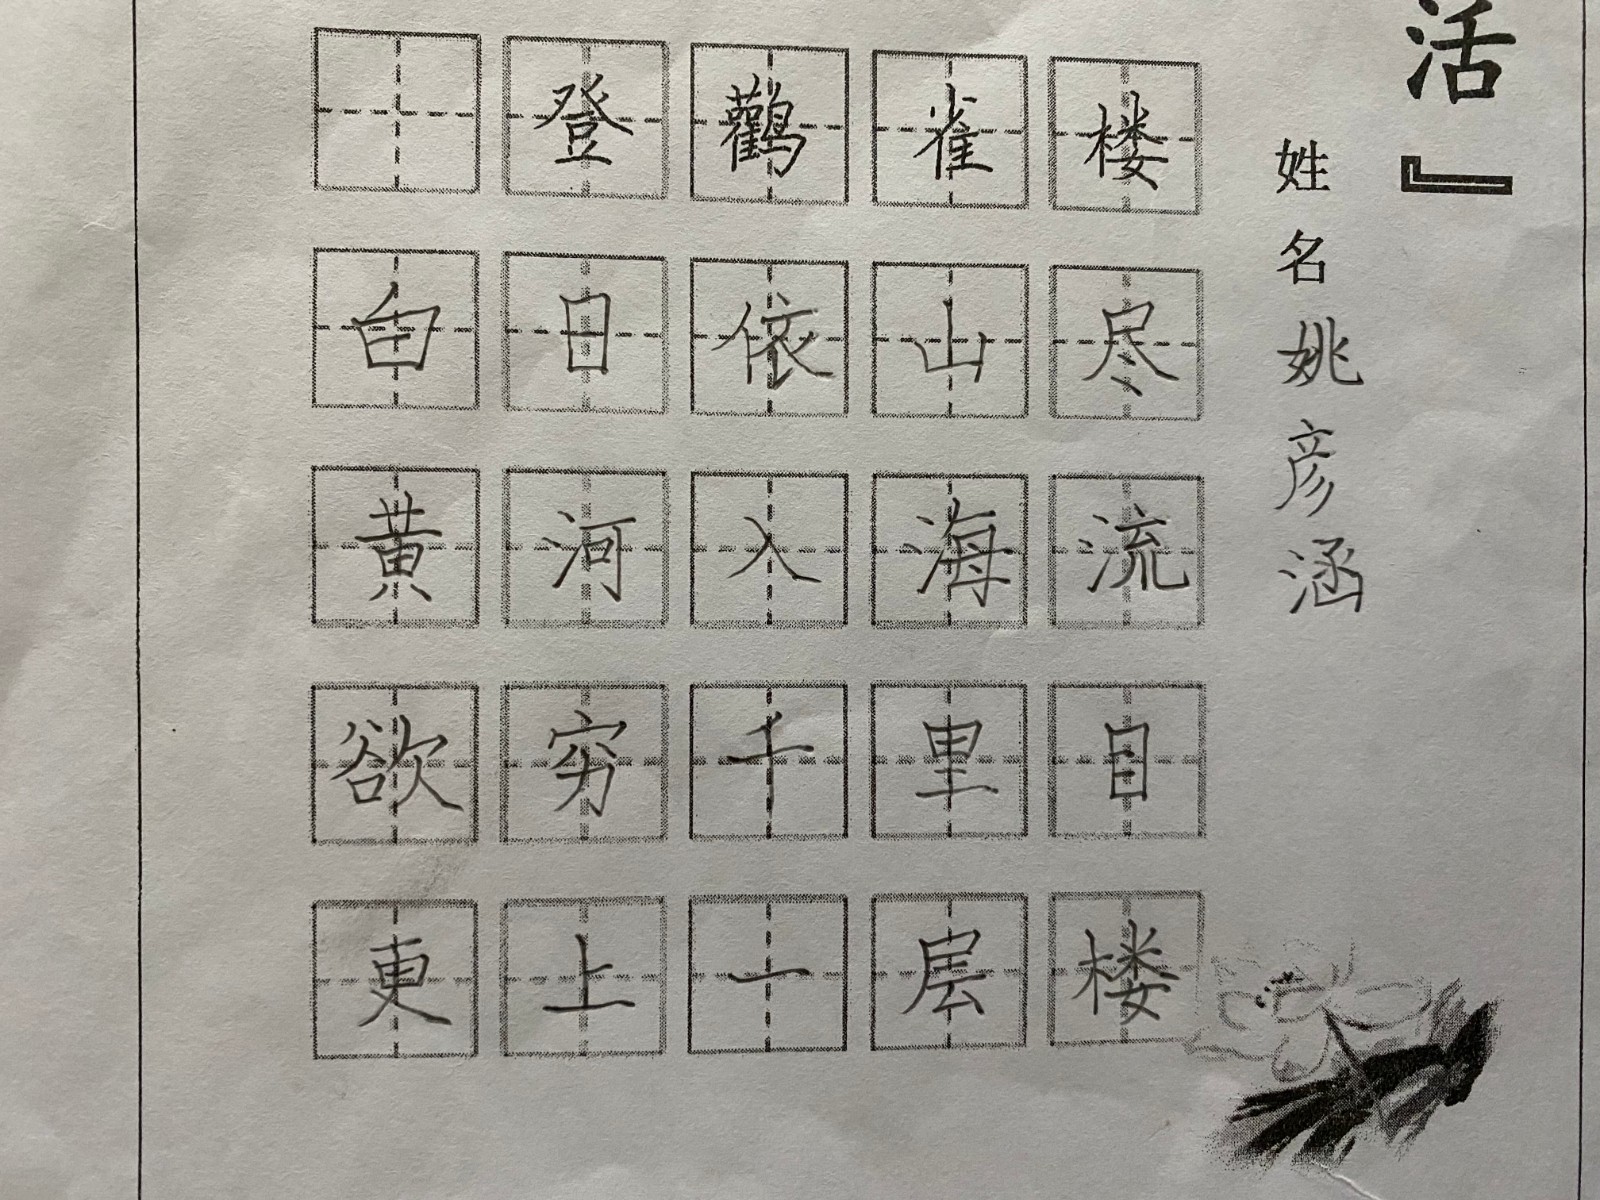 活』
姓名姚彦涵
登鸛雀楼
白日依山尽
黄河入海流
欲穷千里目
更上一层楼